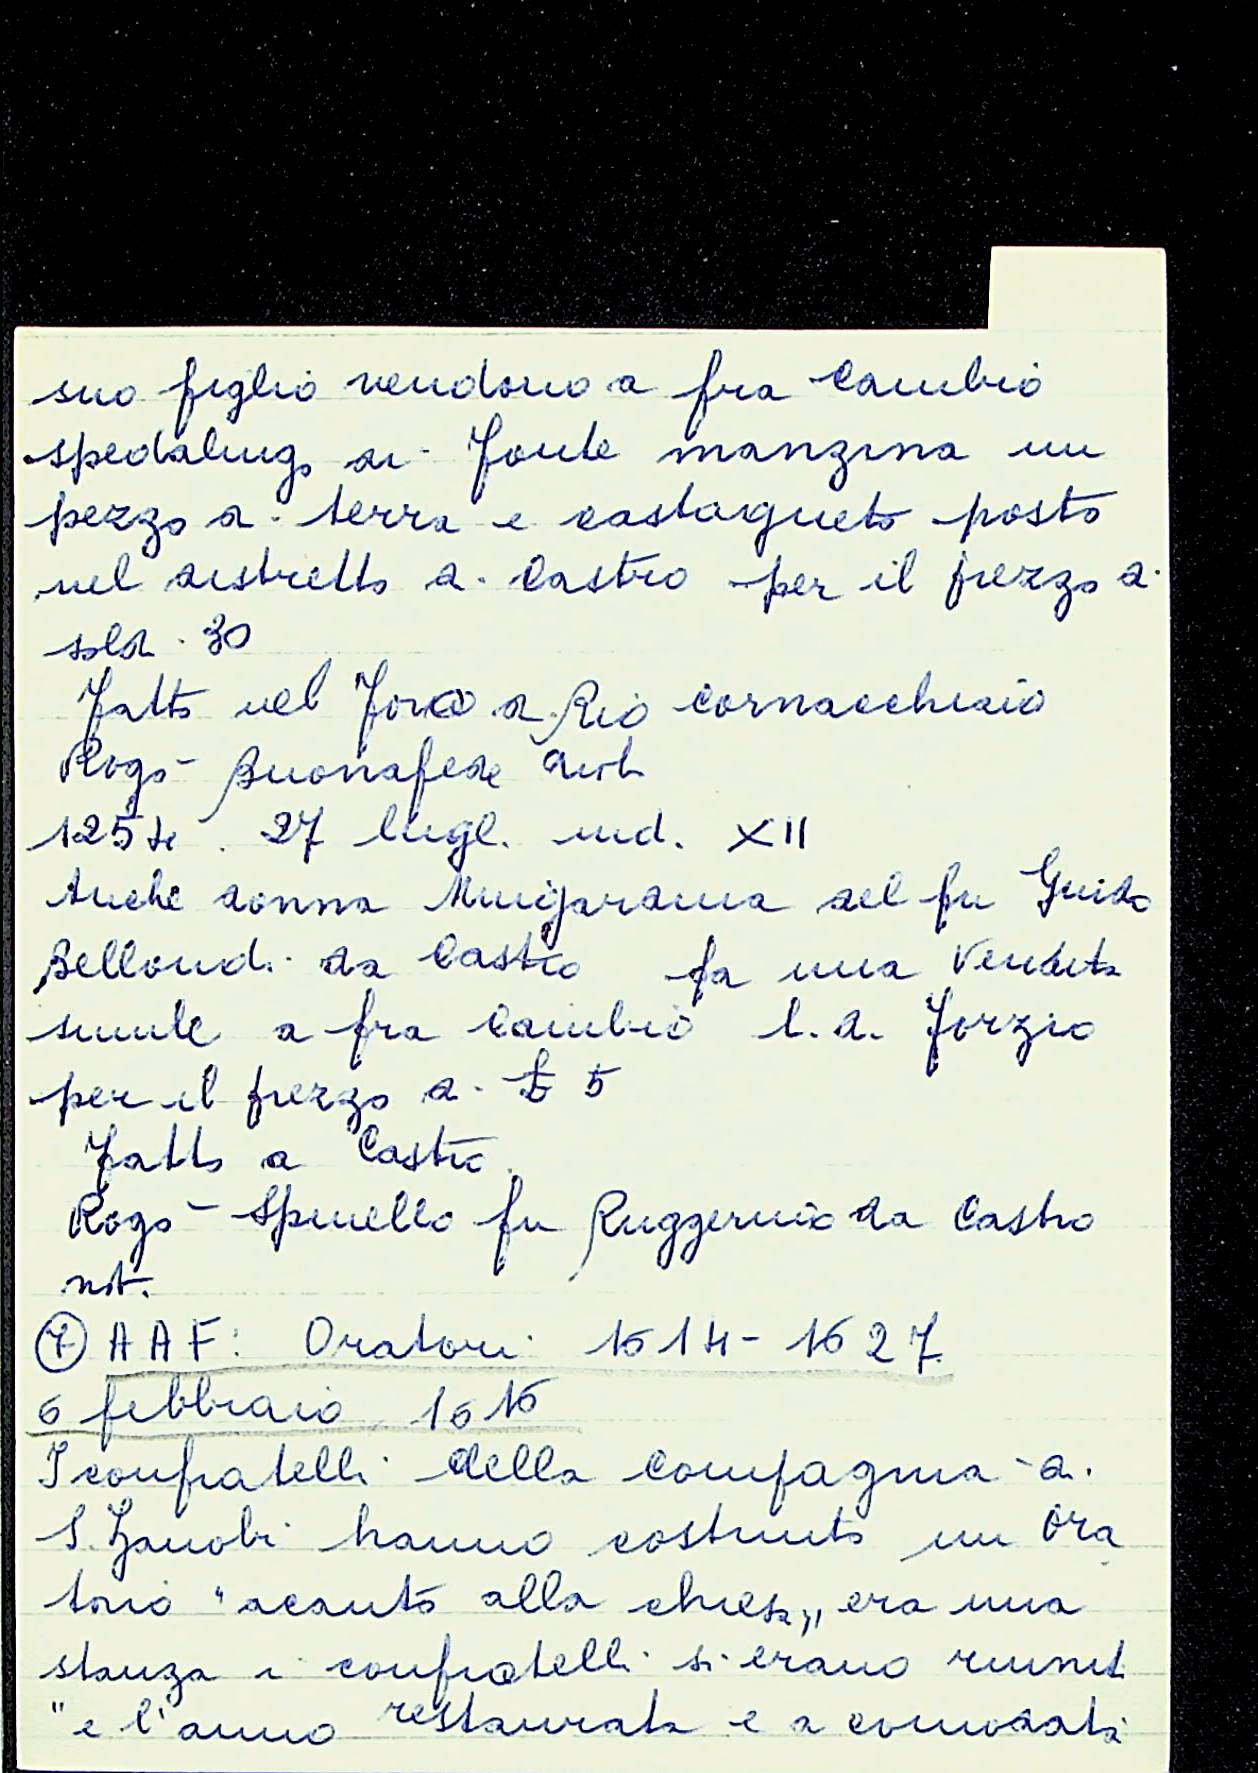 suo figlio vendono a fra Cambio
spedalingo di Fonte manzina un
pezzo di terra e castagneto posto
nel distretto di Castro per il prezzo di
soldi 30
Fatto nel Foro di Rio cornacchiaio
Rogò Buonafede
1254. 27 lugl. ind. XII
Anche donna del fu Guido
Bellondi da Castro fa una vendita
simile a fra Cambio l. d. Forzio
per il prezzo di £ 5
Fatto a Castro.
Rogò Spinello fu Ruggerino da Castro
not.
7 AAF: Oratori 1614-1627.
6 febbraio 1616
I confratelli della compagnia di
S. Zanobi hanno costruito un ora
torio "acanto alla chiesa" era una
stanza i confratelli si erano riuniti
"e l'anno restaurata e a comodata